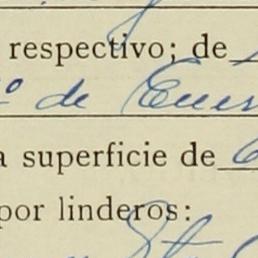 respectivo; de
º de Enero
a superficie de
por linderos: